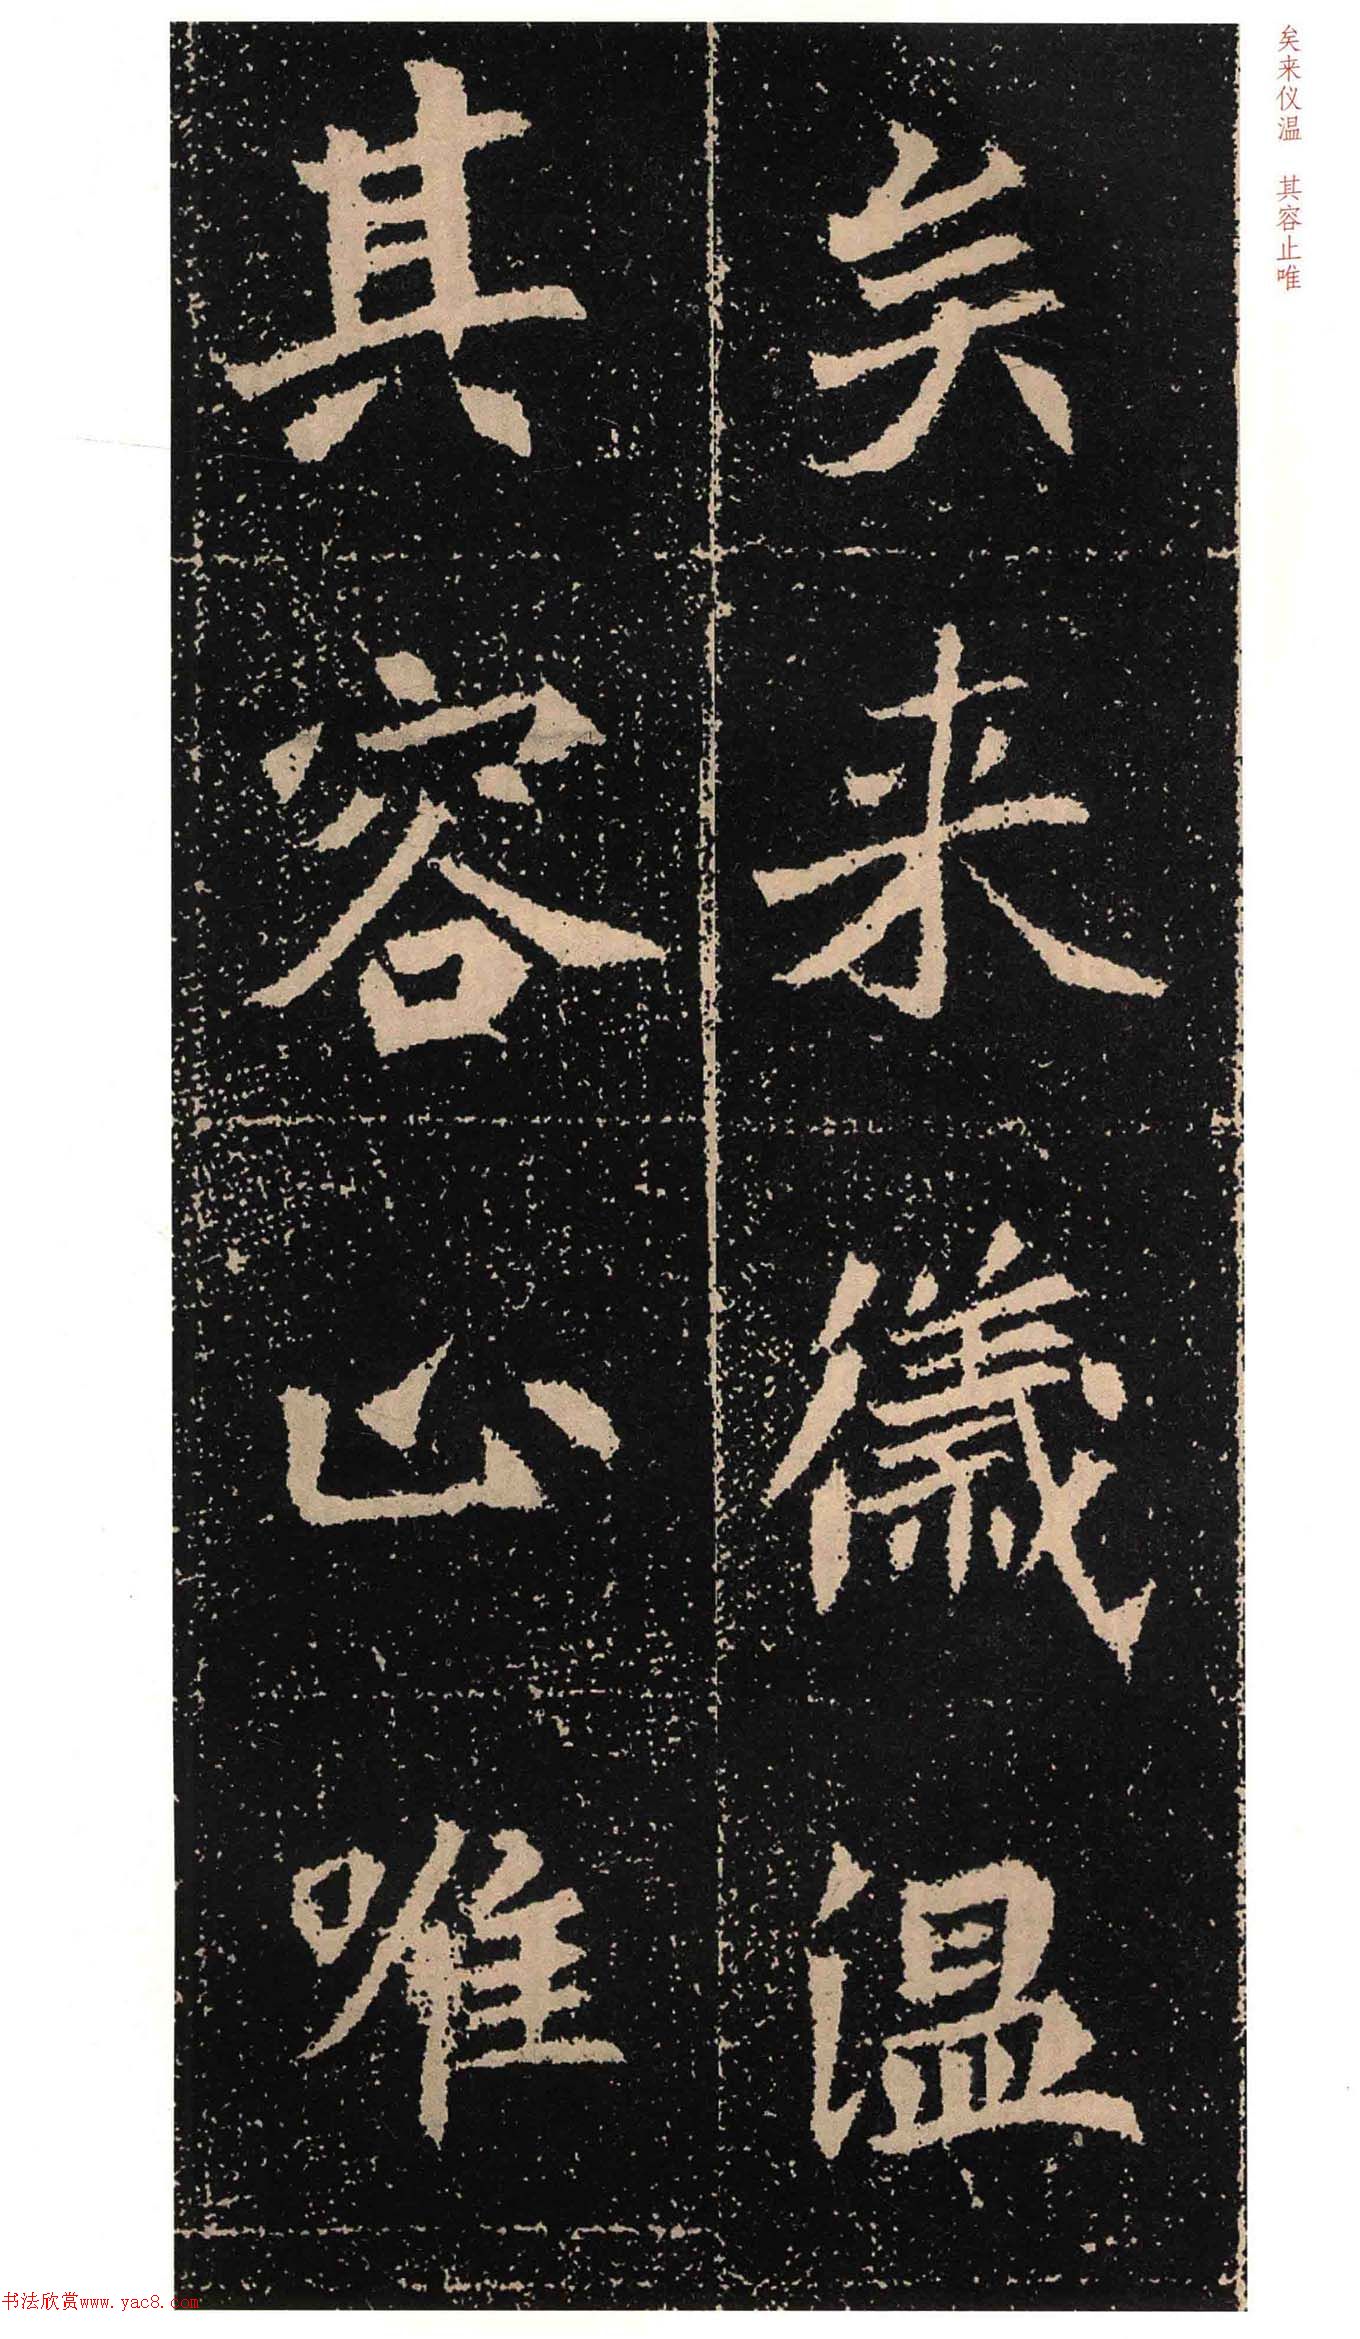 矣来仪温 其容止唯
矣来儀温
其容止唯
书法欣赏www.yac8.com